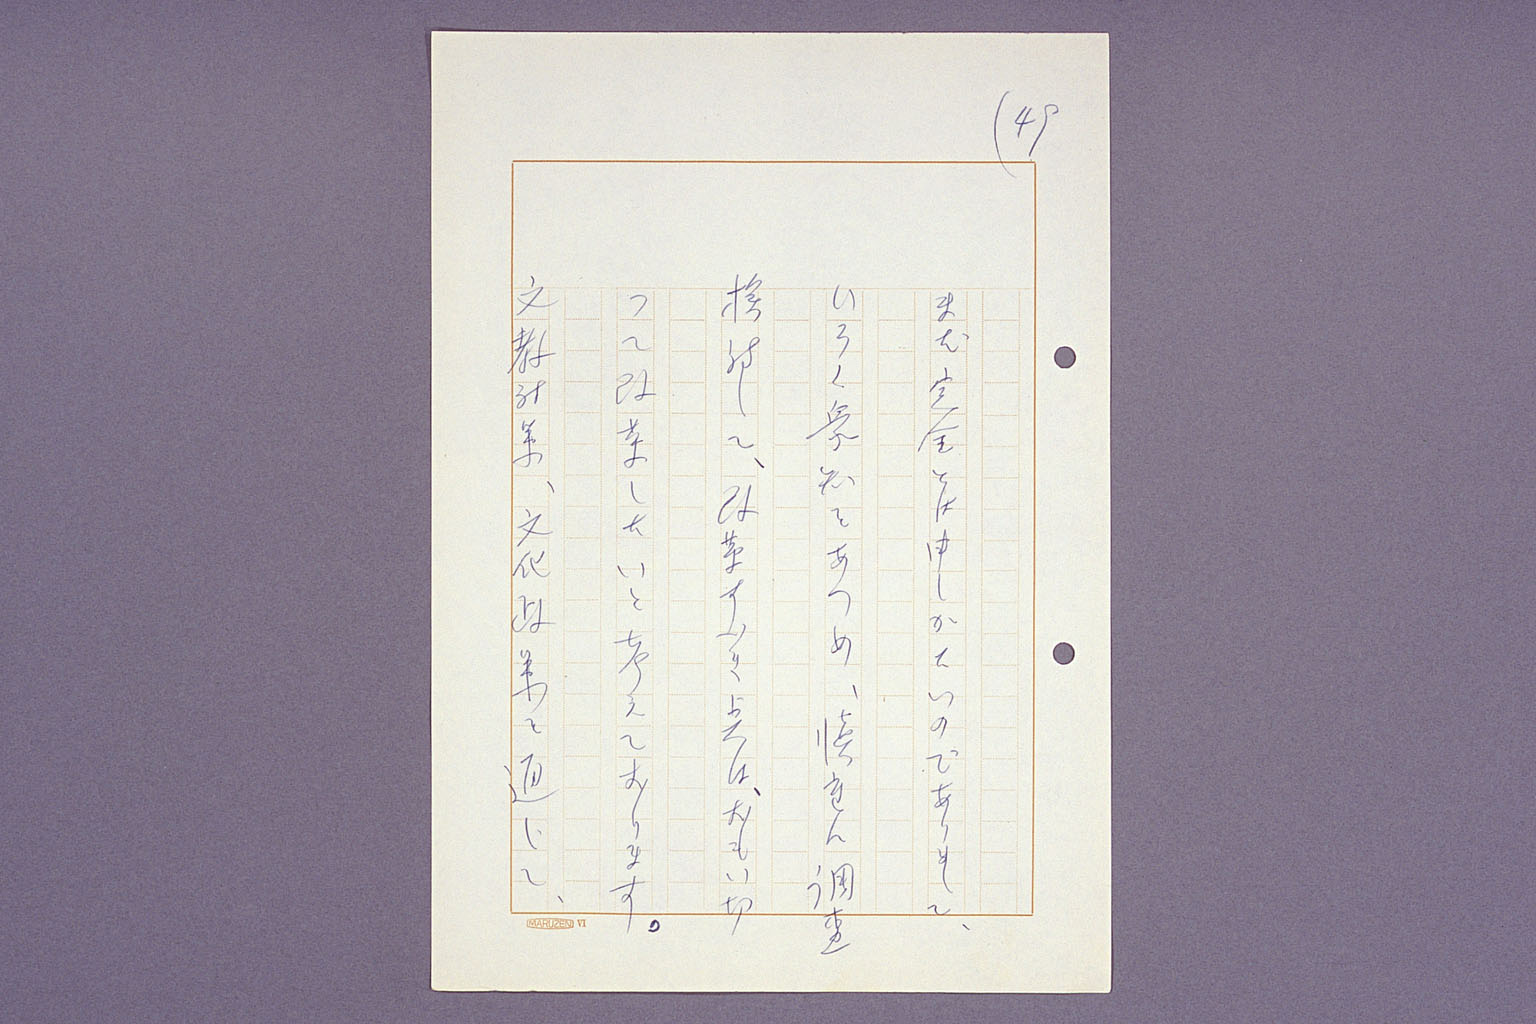 (49
まだ完全とは申しがたいのでありまして、
いろ〱衆知をあつめ、慎重に調査
検討して、改革すべき点は、おもい切
つて改革したいと考えております。
文教対策、文化政策を通じて、
MARUZEN VI